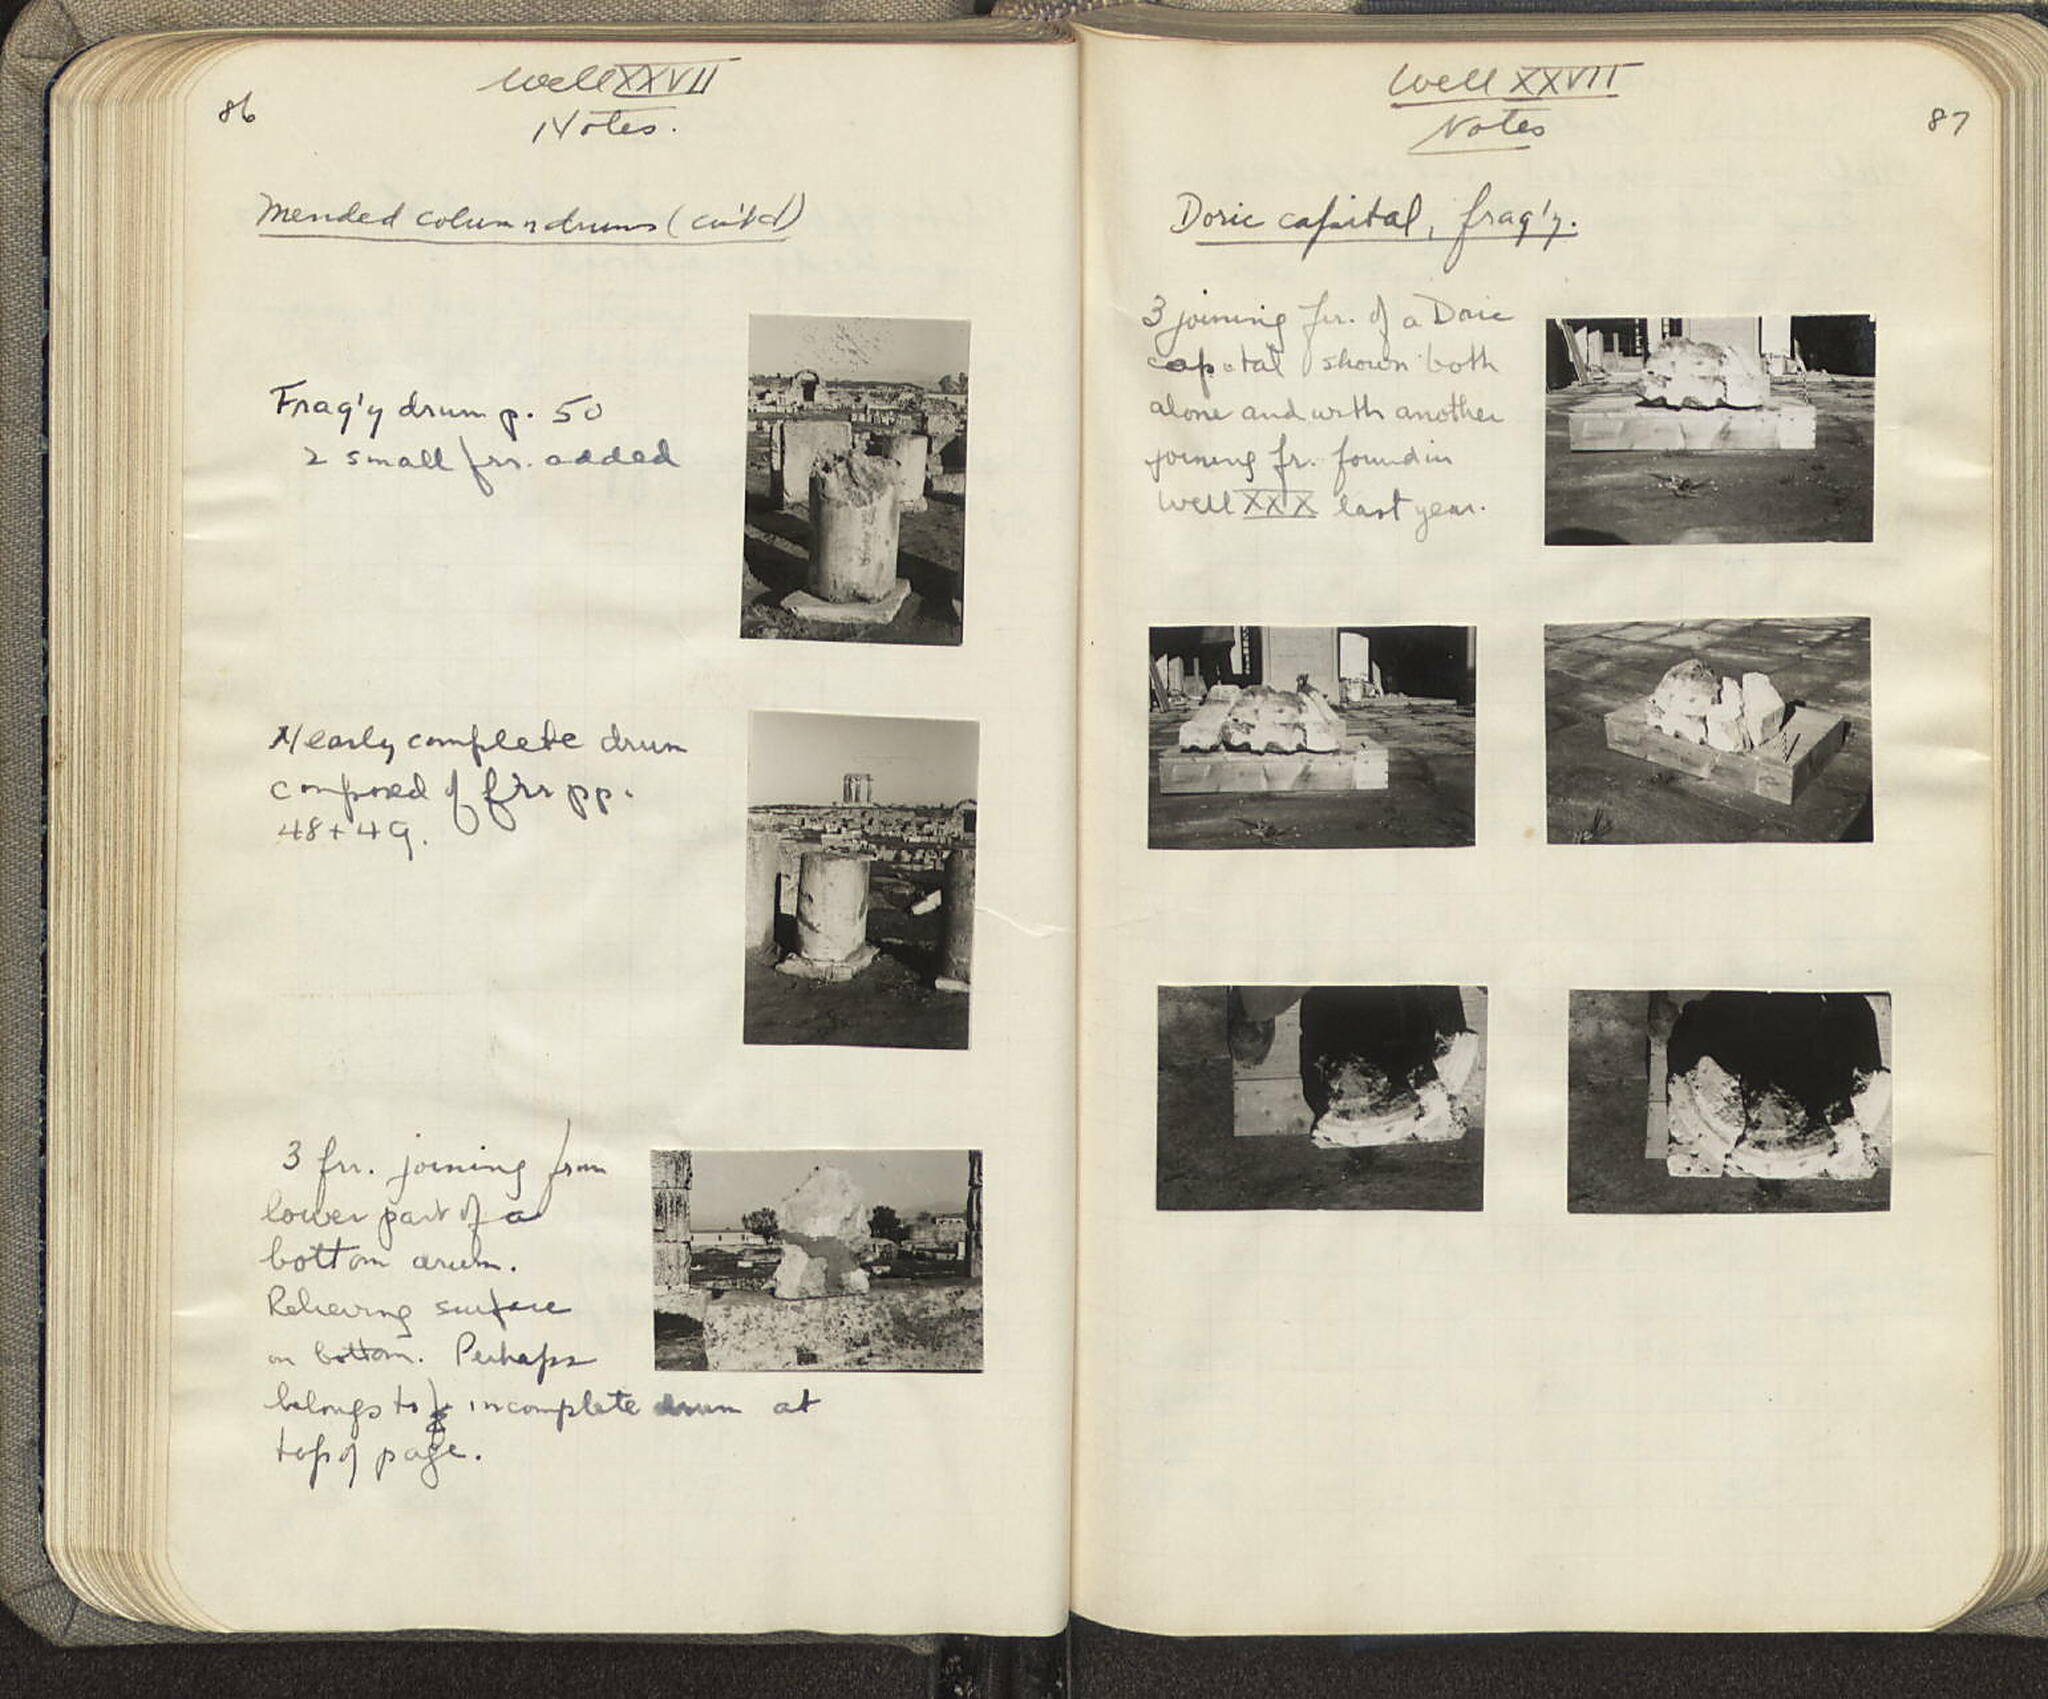 86
Well XXVII
Notes.
Mended column drums (cont'd)
Frag'y drum p. 50
2 small frr. added
Nearly complete drum
composed of frr pp.
48 + 49.
3 frr. joining from
lower part of a
bottom drum.
Relieving surface
on bottom. Perhaps
belongs to incomplete drum at
top of page.
87
Well XXVII
Notes
Doric capital, frag'y.
3 joining frr. of a Doric
capital shown both
alone and with another
joining fr. found in
Well XXX last year.